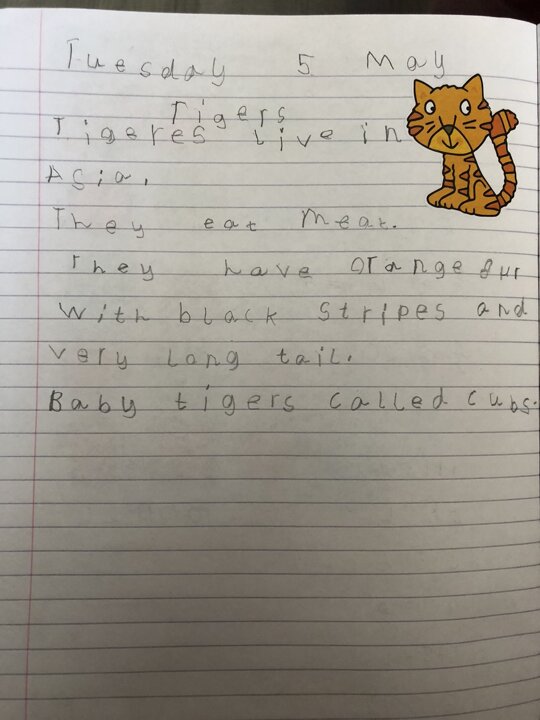 Tuesday 5 May
Tigers
Tigeres live in
Asia.
They eat meat.
They have orange fur
with black stripes and
very long tail.
Baby tigers called cubs.